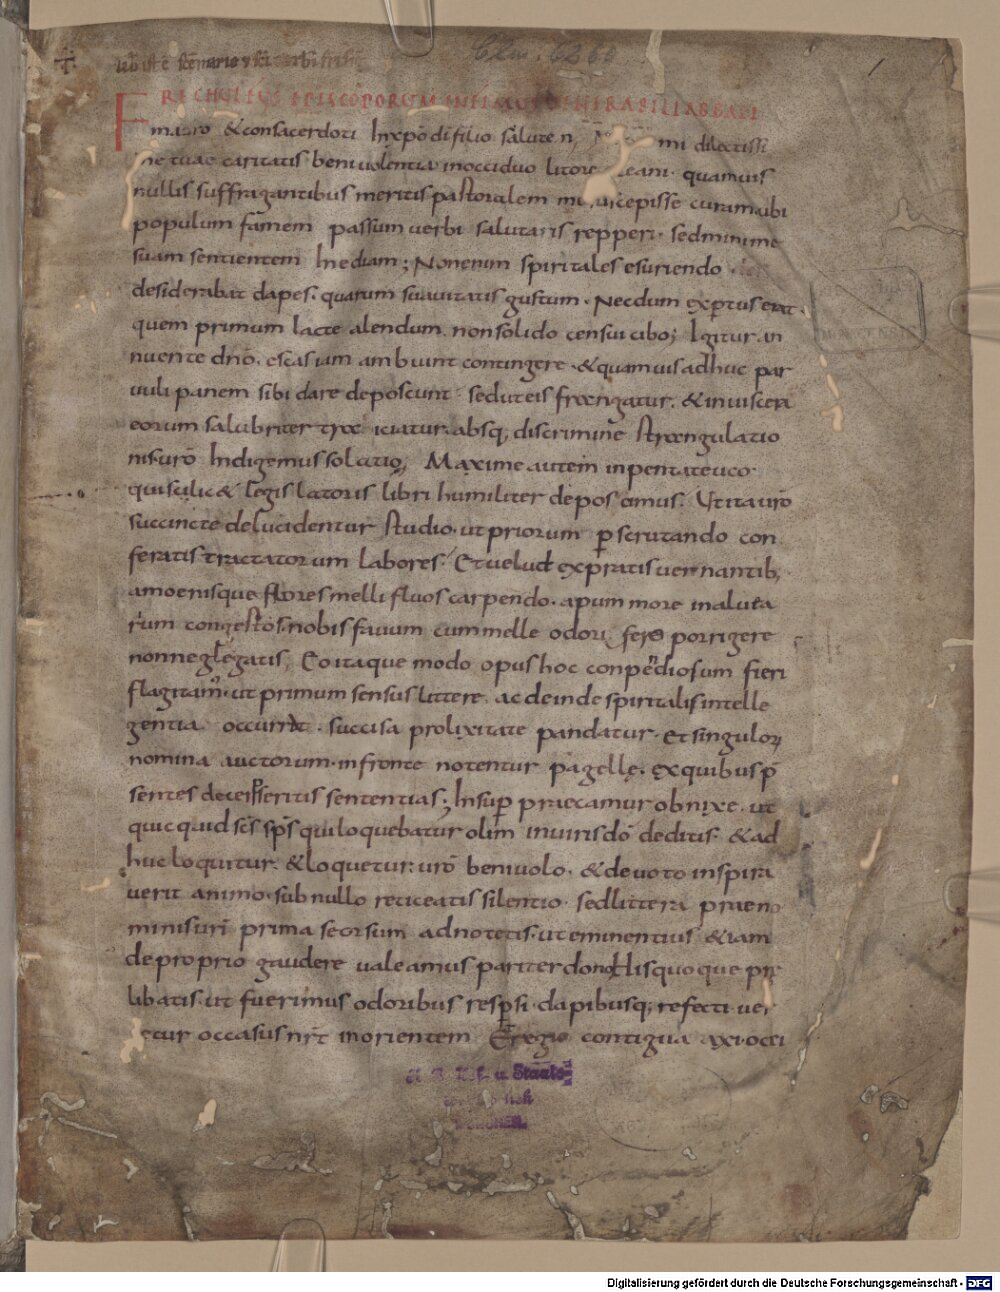 Clm. 6260
1
FRECHULFUS EPISCOPORUM INFIMUS VENERABILI ABBATI
mauro & consacerdoti In xpo di filio salutem mi dilectissi
me tuae caritatis benivolentia in occiduo litore quamvis
nullis suffragantibus meritis pastoralem me suscepisse curam ubi
populum famem passum verbi salutaris repperi. sed minime
suam sentientem Inediam; Non enim spiritales esuriendo
desiderabat dapes. quarum suavitatis gustum. Necdum expertus erat.
quem primum lacte alendum. non solido censui cibo; Igitur. in
nuente dno. escas iam ambiunt contingere. & quamvis adhuc par
vuli panem sibi dare deposcunt. sed ut eis frangatur. & in viscera
eorum salubriter traiciatur. absq; discrimine strangulatio
nis uro Indigemus solatio; Maxime autem in pentateuco.
qui scilic& legis latoris libri humiliter deposcimus. Ut ita uro
succincte delucidentur studio. ut priorum p scrutando con
feratis tractatorum labores. Et velud ex pratis vernantib;
amoenisque flores mellifluos carpendo. apum more in alveta
rium congestos. nobis favum cum melle odorifero porrigere
non neglegatis; Eo itaque modo opus hoc conpendiosum fieri
flagitam'. ut primum sensus littere. ac deinde spiritalis intelle
gentia occurrat. succisa prolixitate pandatur. Et singulor
nomina auctorum. in fronte notentur pagelle. ex quibus p
sentes decerpseritis sententias; Insup praecamur obnixe. ut
quicquid scs sps qui loquebatur olim in viris do deditis. & ad
huc loquitur. & loquetur. uro benivolo. & devoto inspira
verit animo. sub nullo reticeatis silentio. sed littera praeno
minis uri prima seorsum adnotetis. ut eminentius & iam
de proprio gaudere valeamus pariter donatis quoque pre
libatis. ut fuerimus odoribus respersi. dapibusq; refecti. ver
tetur occasus nr in orientem. Et regio contigua axi occi
K. B. Staats
MÜNCHEN
Digitalisierung gefördert durch die Deutsche Forschungsgemeinschaft - DFG